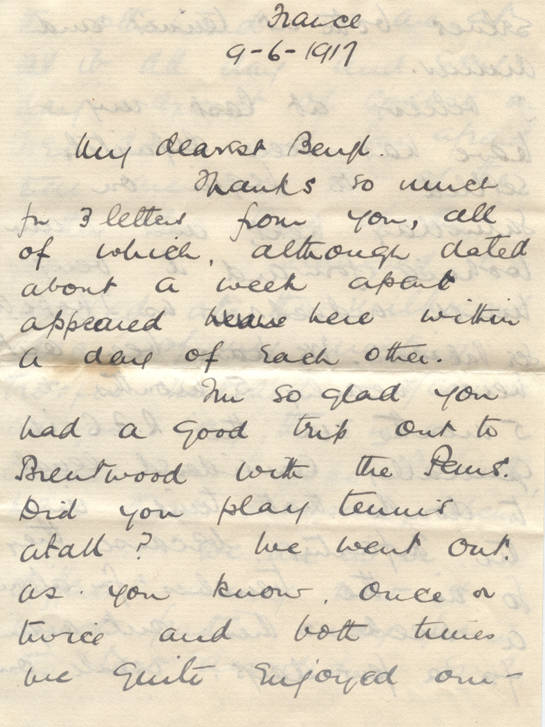 France
9-6-1917
My dearest
Thanks so much
for 3 letters from you, all
of which, although dated
about a week apart
appeared here within
a day of each other.
I'm so glad you
had a good trip out to
Brentwood with the
Did you play tennis
atall? We went out.
as you know, once or
twice and both times
we quite enjoyed our-